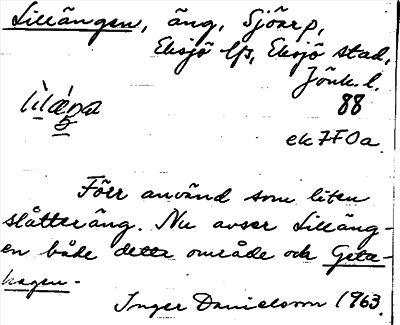 Lillängen, äng, Sjöarp,
Eksjö lfs, Eksjö stad,
Jönk. l.
88
ek 7F0a
Förr använd som liten
slåtteräng. Nu avser Lilläng-
en både detta område och Geta-
hagen.
Inger Danielsson 1963.